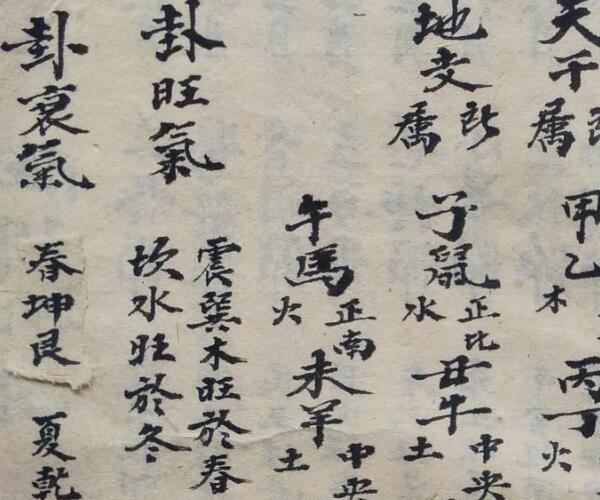 天干所属 甲乙木 丙丁火
地支所属 子鼠 正北水 丑牛 中央土
午馬 正南火 未羊 中央土
卦旺氣 震巽木旺於春
坎水旺於冬
卦衰氣 春坤艮 夏乾